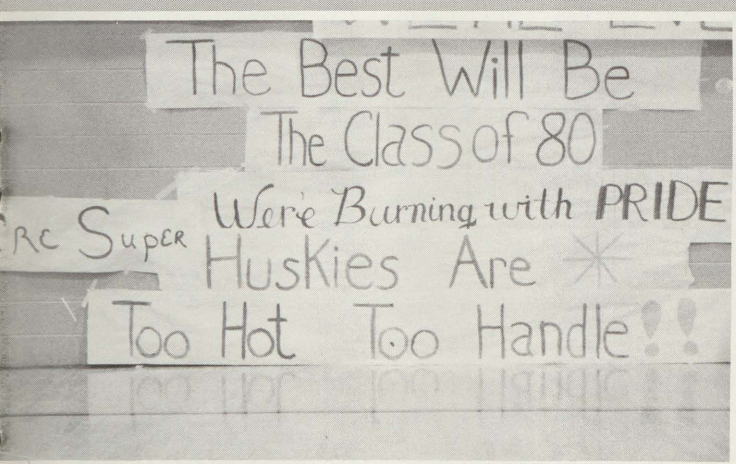 The Best Will Be
The Class of 80
We're Burning with PRIDE
RE SupeR
Huskies Are
Too Hot Too Handle!!